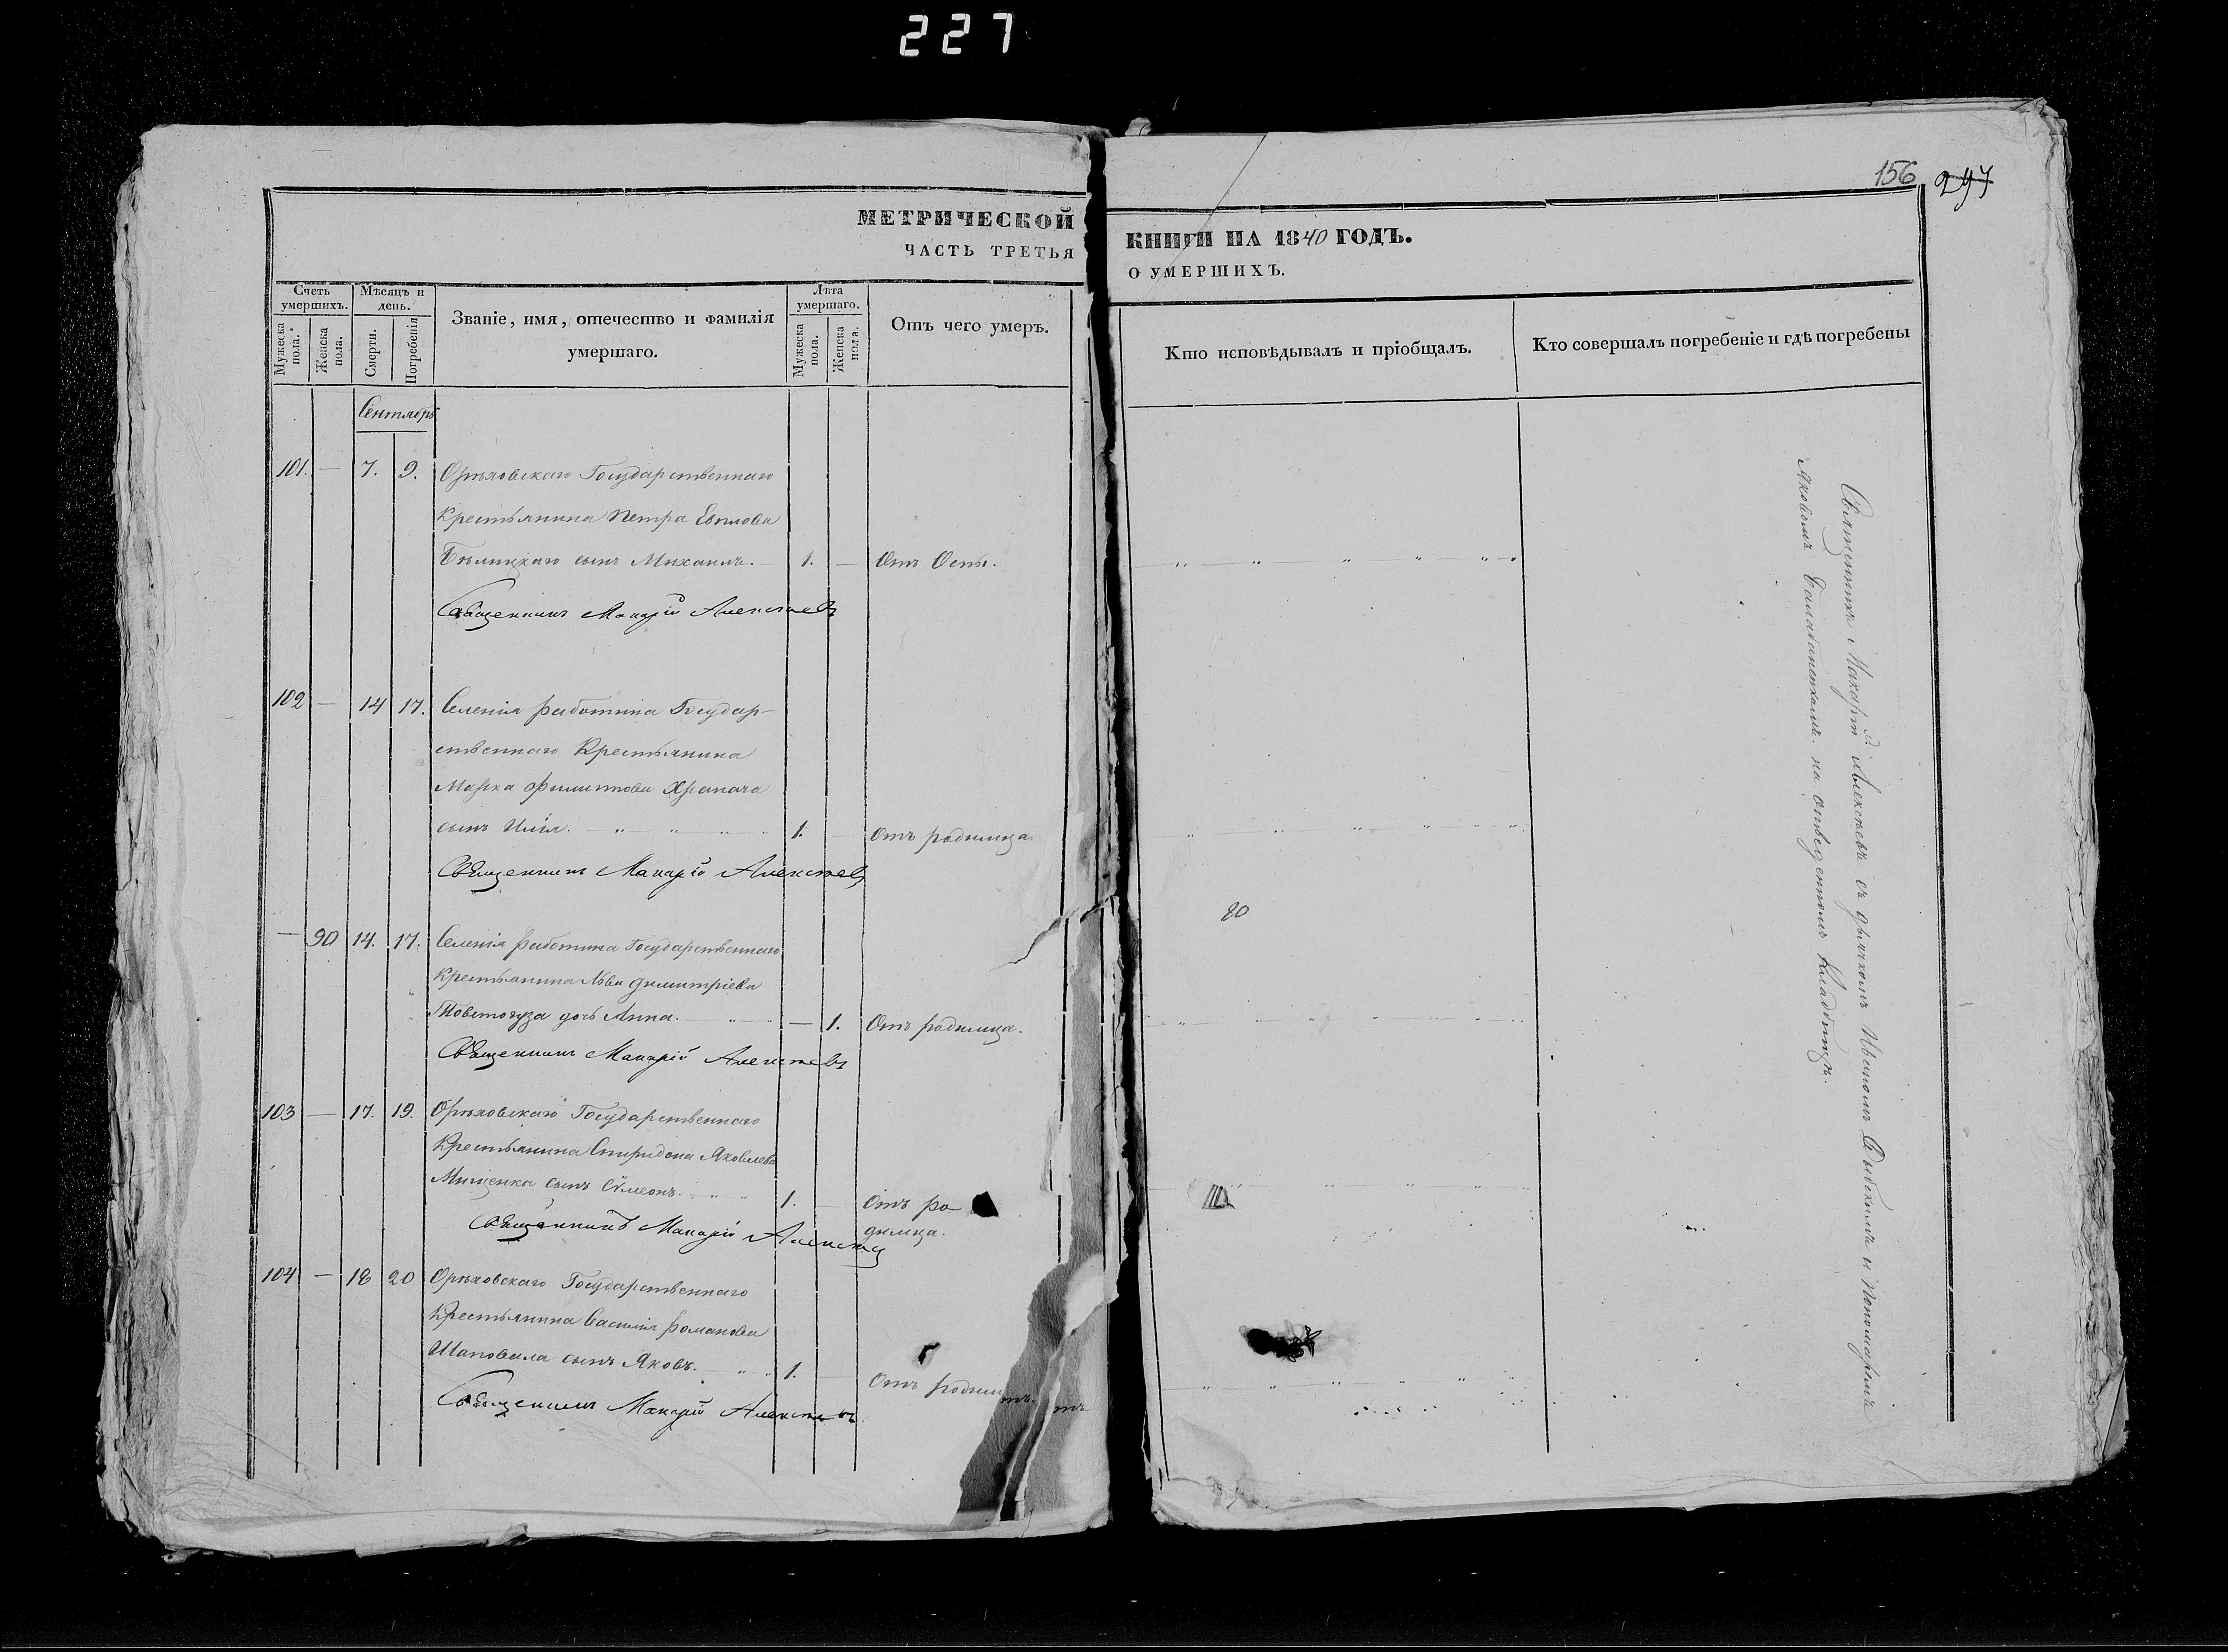 227
156 297
МЕТРИЧЕСКОЙ КНИГИ НА 1840 ГОДЪ.
ЧАСТЬ ТРЕТЬЯ О УМЕРШИХЪ.
Счетъ умершихъ.
Мужеска пола.
Женска пола.
Мѣсяцъ и день.
Смерти.
Погребенія
Званіе, имя, отечество и фамилія
умершаго.
Лѣта умершаго.
Мужеска пола.
Женска пола.
Отъ чего умеръ.
Кто исповѣдывалъ и пріобщалъ.
Кто совершалъ погребеніе и гдѣ погребены
Сентябрь
101. — 7. 9. Орѣховскаго Государственнаго
Крестьянина Петра Евплова
Бѣлицкаго сынъ Михаилъ. 1. — Отъ Оспы.
Священникъ Макарій Алексѣевъ
102 — 14 17. Селенія работина Государ-
ственнаго Крестьянина
Марка Филиппова Храпача
сынъ Илія. 1. — Отъ родимца.
Священникъ Макарій Алексѣевъ
— 90 14. 17. Селенія работина Государственнаго
Крестьянина Льва Димитріева
Товстогуза дочь Анна. — 1. Отъ родимца.
Священникъ Макарій Алексѣевъ
20
103 — 17. 19. Орѣховскаго Государственнаго
Крестьянина Спиридона Яковлева
Мищенка сынъ Сѵмеонъ. 1. — Отъ ро
димца.
Священникъ Макарій Алексѣев
104 — 18 20 Орѣховскаго Государственнаго
Крестьянина Василія Романова
Шаповала сынъ Яковъ. 1. — Отъ родим
Священникъ Макарій Алексѣевъ
Священникъ Макарій Алексѣевъ съ дьячкомъ Ивано​мъ и пономаремъ
Яковомъ Балабаненкомъ. на отведенномъ Кладбищѣ.